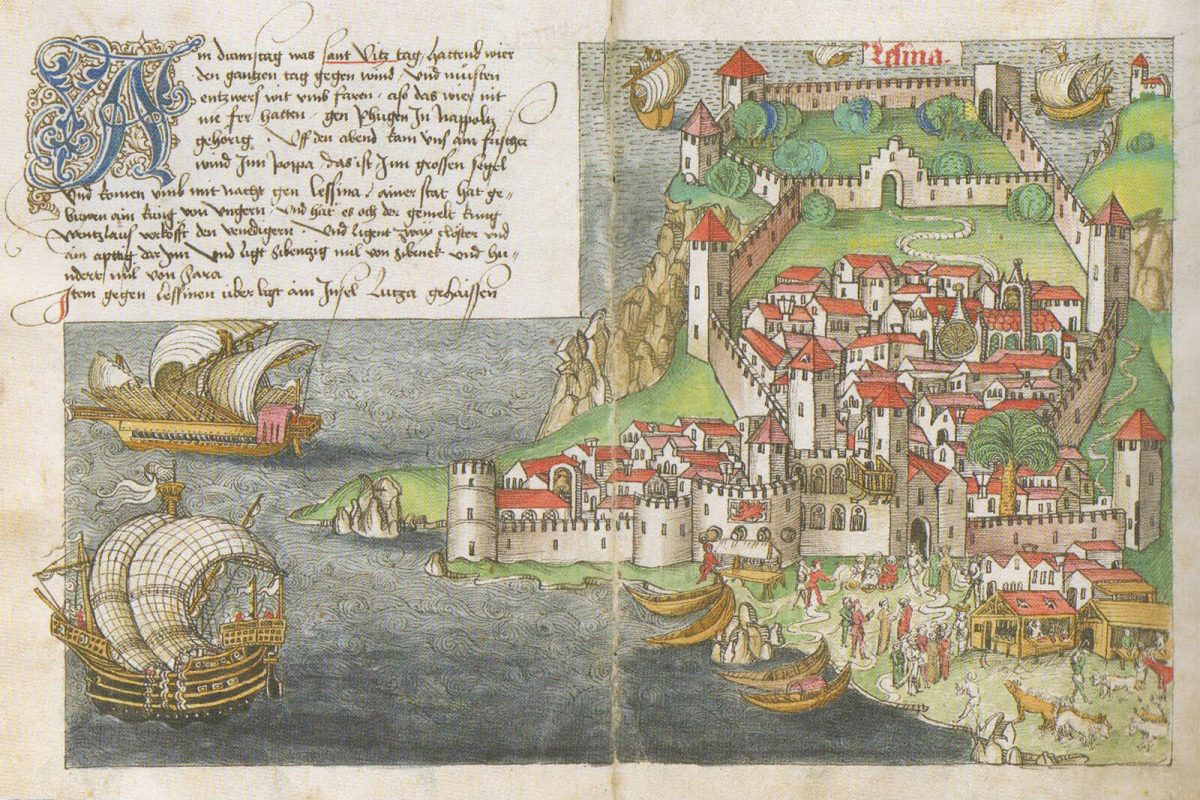 An dunstag was sant Vitz tag hattend wier
den gantzen tag gegen wind / und musten
entzwers wit umb faren / also das wier nit
me fer hatten / gen phugen In Nappolitz
gehorig / Uff den abend kam uns ain frischer
wind Inn poppa / das ist Inn grossen segel
Und komen umb mit nacht gen Lessina / ainer stat hat ge-
buwen ain kung von ungern / und hat es och der gemelt kung
Wentzlaus verkofft den venedigern / Und ligent zway closter und
ain apptig dar Inn / Und ligt sibentzig mil von Sibenek und hu-
ndert mil von Sara
Item gegen Lessinen uber ligt ain Insel Lutza gehaissen
Lesina.